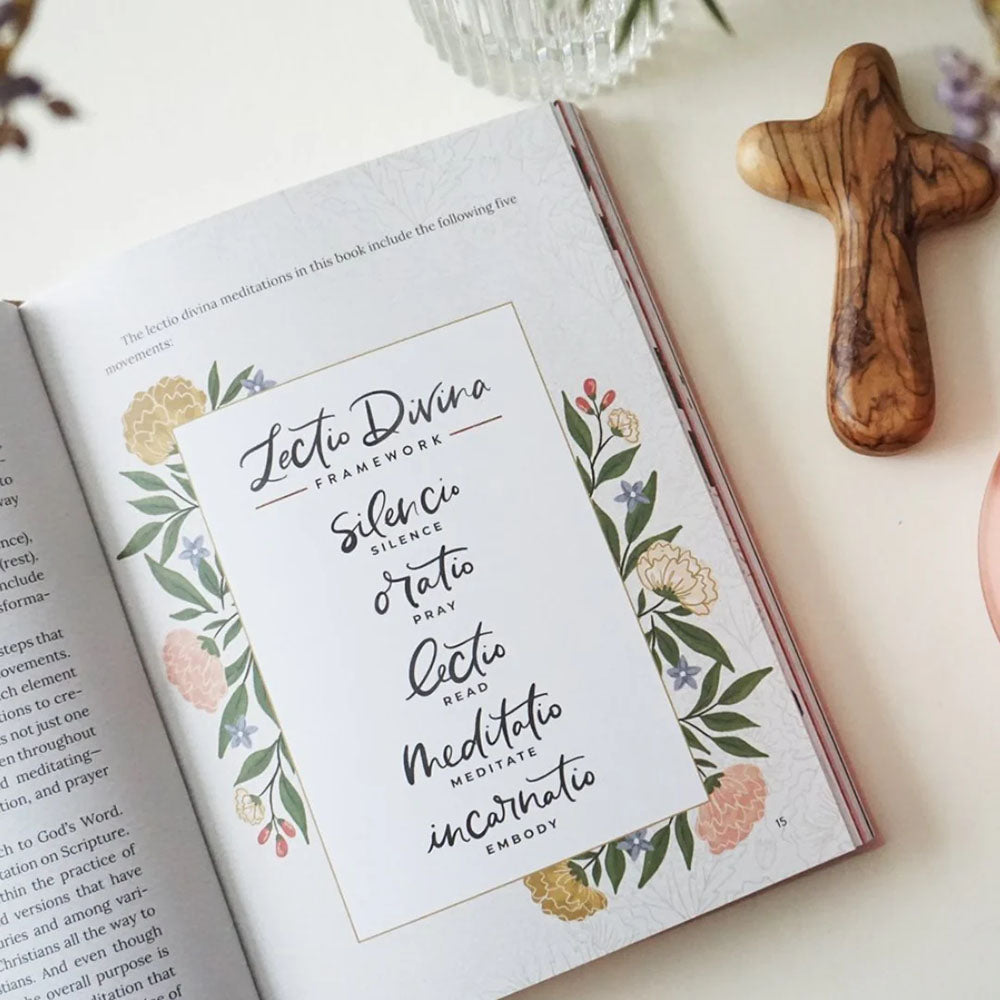 to
way
nce),
(rest),
nclude
sforma-
steps that
ovements.
ch element
tions to cre-
s not just one
en throughout
d meditating—
tion, and prayer
ch to God's Word.
tation on Scripture.
thin the practice of
d versions that have
uries and among vari-
Christians all the way to
stians. And even though
he overall purpose is
editation that
The lectio divina meditations in this book include the following five
movements:
Lectio Divina
FRAMEWORK
silencio
SILENCE
oratio
PRAY
lectio
READ
meditatio
MEDITATE
incarnatio
EMBODY
15